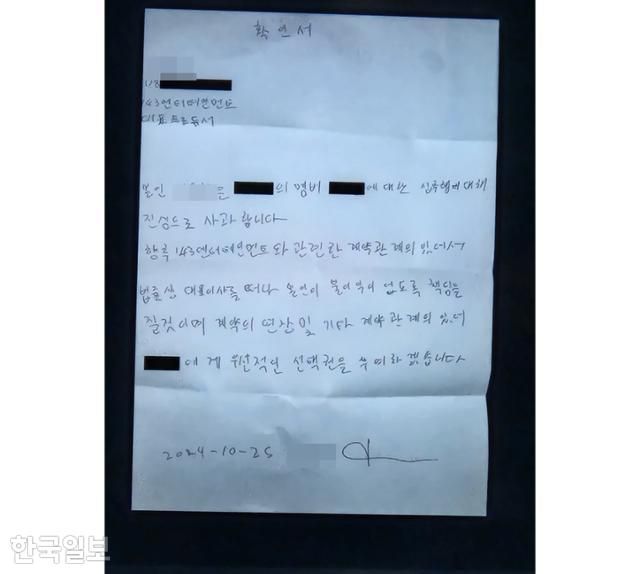 확인서
118
143엔터테인먼트
대표 프로듀서
본인 은 의 멤버 에 대한 성추행에 대해
진심으로 사과합니다
향후 143엔터테인먼트와 관련한 계약관계의 있어서
법률상 대표이사를 떠나 본인이 불이익이 없도록 책임을
질것이며 계약의 연장 및 기타 계약관계의 있어
에게 우선적인 선택권을 부여하겠습니다
2024-10-25
한국일보